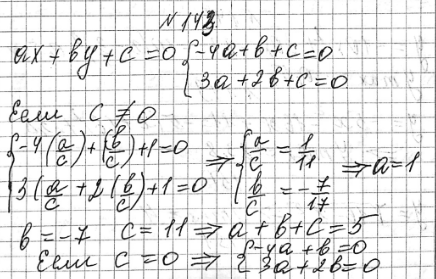 № 143
ax + by + c = 0 { -4a + b + c = 0
3a + 2b + c = 0
Если c ≠ 0
{ -4(a/c) + (b/c) + 1 = 0
3(a/c + 2(b/c) + 1 = 0 ⇒ { a/c = 1/11
b/c = -7/17 ⇒ a = 1
b = -7 c = 11 ⇒ a + b + c = 5
Если c = 0 ⇒ { -4a + b = 0
3a + 2b = 0